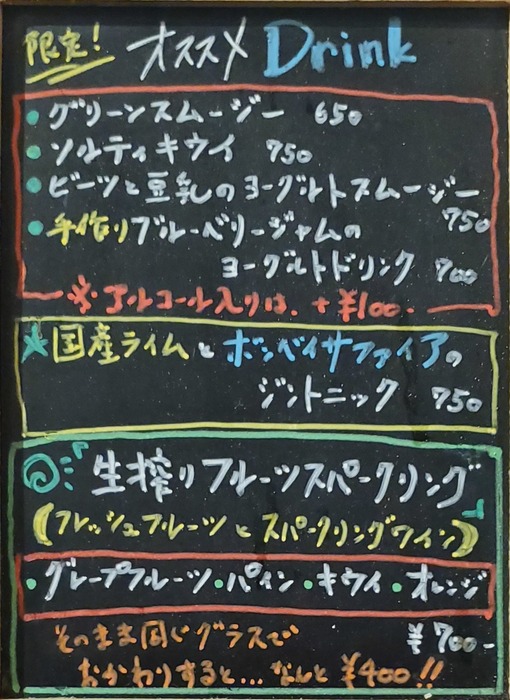 限定! オススメ Drink
• グリーンスムージー 650
• ソルティキウイ 750
• ビーツと豆乳のヨーグルトスムージー
750
• 手作りブルーベリージャムの
ヨーグルトドリンク 700
※アルコール入りは、+¥100.
★国産ライムとボンベイサファイアの
ジントニック 750
生搾りフルーツスパークリング
(フレッシュフルーツとスパークリングワイン)
• グレープフルーツ・パイン・キウイ・オレンジ
そのまま同じグラスで ¥700-
おかわりすると...なんと¥400!!